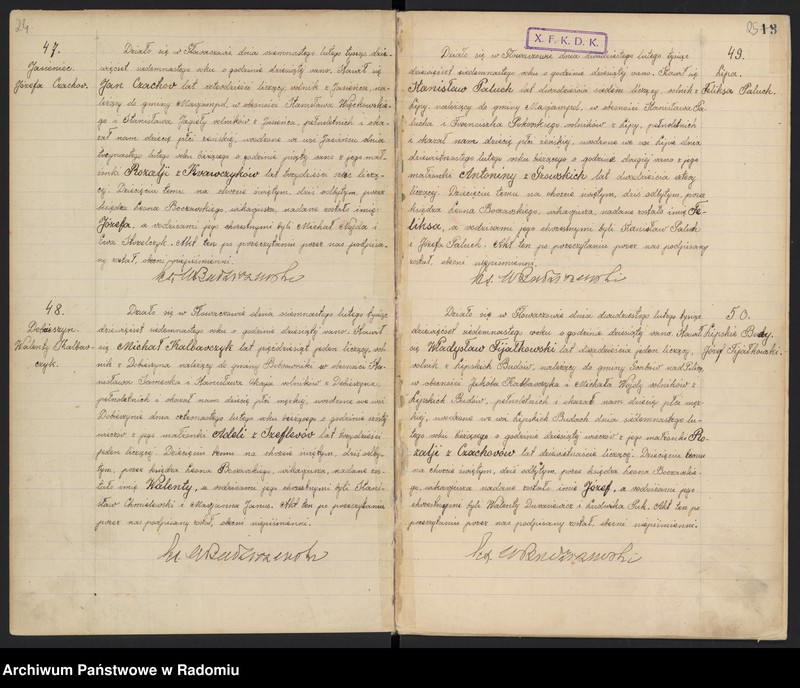 24
47.
Jasieniec.
Józefa Czachow.
Działo się w Stawiszynie dnia siemnastego lutego tysiąc dzie-
więćset siedemnastego roku o godzinie dziesiątej rano. Stawił się
Jan Czachow lat czterdzieści liczący, rolnik z Jasieńca, na-
leżący do gminy Maryampol, w obecności Stanisława
go i Stanisława Jagieły rolników z Jasieńca, pełnoletnich i oka-
zał nam dziecię płci żeńskiej, urodzone we wsi Jasieńcu dnia
trzynastego lutego roku bieżącego o godzinie piątej rano z jego mał-
żonki Rozalji z Krawczyków lat trzydzieści sześć liczą-
cej. Dziecięciu temu na chrzcie świętym, dziś odbytym, przez
księdza Leona Boczarskiego, wikaryusza, nadane zostało imię
Józefa, a rodzicami jego chrzestnymi byli Michał Wajda i
Ewa Strzelczyk. Akt ten po przeczytaniu przez nas podpisa-
ny został, obecni niepiśmienni.
48.
Dobieszyn.
Walenty Kalbar-
czyk.
lutego tysiąc
dziewięćset siedemnastego roku o godzinie dziesiątej rano. Stawił
się Michał Kalbarczyk lat pięćdziesiąt jeden liczący, rol-
nik z Dobieszyna należący do gminy, w obecności Sta-
nisława i Stanisława rolników z Dobieszyna,
pełnoletnich i okazał nam dziecię płci męskiej, urodzone we wsi
Dobieszynie dnia czternastego lutego roku bieżącego o godzinie szóstej
wieczór z jego małżonki Adeli z Szeflerów lat trzydzieści
jeden liczącej. Dziecięciu temu na chrzcie świętym, dziś odby-
tym, przez księdza Leona Boczarskiego, wikaryusza, nadane zos-
tało imię Walenty, a rodzicami jego chrzestnymi byli Stani-
sław Chmielewski i Maryanna Janus. Akt ten po przeczytaniu
przez nas podpisany został, obecni niepiśmienni.
X. F. K. D. K.
25
13
49.
Lipa.
Feliksa Paluch.
dnia dwudziestego lutego tysiąc
dziewięćset siedemnastego roku o godzinie dziesiątej rano. Stawił się
Stanisław Paluch lat dwadzieścia siedem liczący, rolnik z
Lipy, należący do gminy Maryampol, w obecności Stanisława Pa-
lucha i Franciszka rolników z Lipy, pełnoletnich
i okazał nam dziecię płci żeńskiej, urodzone we wsi Lipa dnia
dziewiętnastego lutego roku bieżącego o godzinie drugiej rano z jego
małżonki Antoniny z lat dwadzieścia
liczącej. Dziecięciu temu na chrzcie świętym, dziś odbytym, przez
księdza Leona Boczarskiego, wikaryusza, nadane zostało imię Fe-
liksa, a rodzicami jego chrzestnymi byli Stanisław Paluch
i Józefa Paluch. Akt ten po przeczytaniu przez nas podpisany
został, obecni niepiśmienni.
50.
Łępskie Budy.
Józef Fijałkowski.
dnia dwudziestego lutego tysiąc
dziewięćset siedemnastego roku o godzinie dziesiątej rano. Stawił
się Władysław Fijałkowski lat dwadzieścia jeden liczący,
rolnik z Łępskich Budów, należący do gminy
w obecności Jakóba Kalbarczyka i Michała Wajdy rolników z
Łępskich Budów, pełnoletnich i okazał nam dziecię płci męs-
kiej, urodzone we wsi Łępskich Budach dnia siedemnastego lu-
tego roku bieżącego o godzinie dziesiątej wieczór z jego małżonki Ro-
zalji z Czachorów lat dziewiętnaście liczącej. Dziecięciu temu
na chrzcie świętym, dziś odbytym, przez księdza Leona Boczarskie-
go, wikaryusza nadane zostało imię Józef, a rodzicami jego
chrzestnymi byli Walenty i Ludwika. Akt ten po
przeczytaniu przez nas podpisany został, obecni niepiśmienni.
Archiwum Państwowe w Radomiu